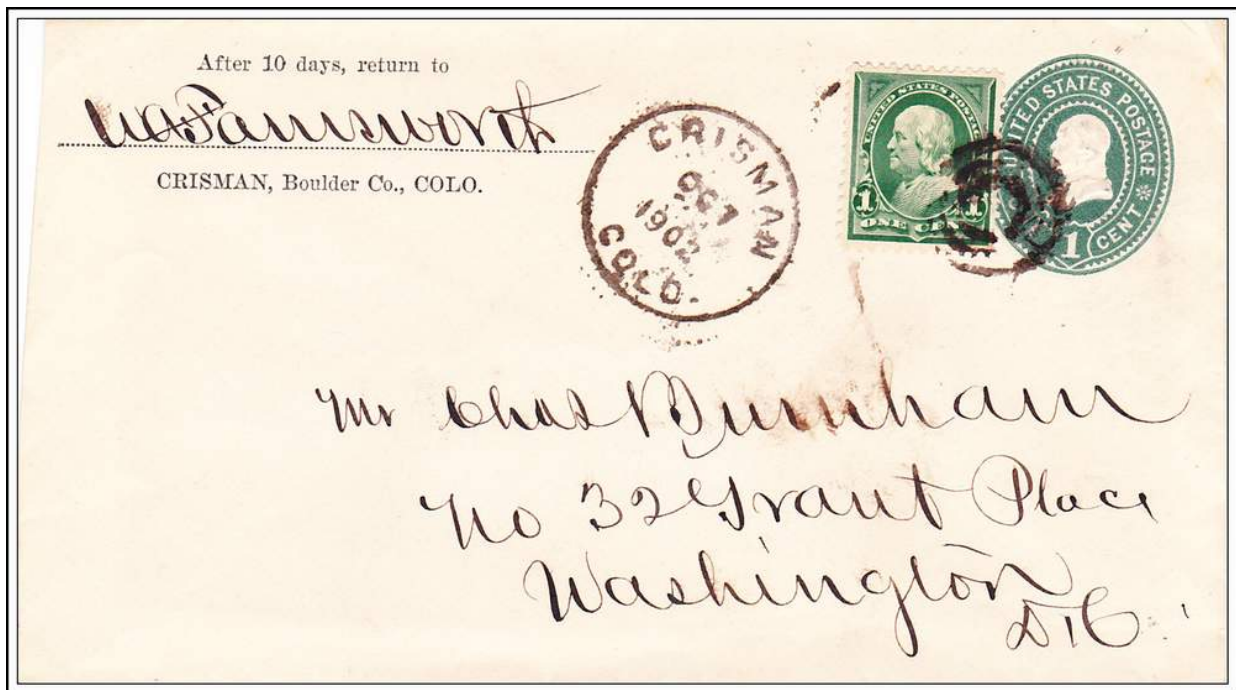 After 10 days, return to
Farnsworth
CRISMAN, Boulder Co., COLO.
CRISMAN
OCT
1902
COLO.
UNITED STATES POSTAGE
1 1
ONE CENT
UNITED STATES POSTAGE
1 CENT
Mr Chas Burnham
No 32 Grant Place
Washington
D.C.